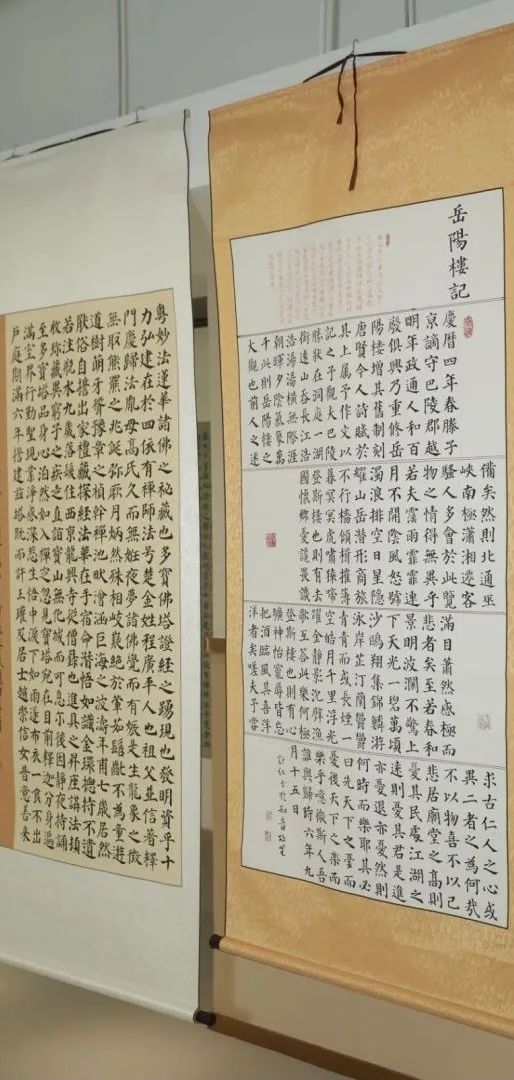 岳陽樓記
慶曆四年春滕子
京謫守巴陵郡越
明年政通人和百
廢俱興乃重修岳
陽樓增其舊制刻
唐賢今人詩賦於
其上屬予作文以
記之予觀夫巴陵
勝狀在洞庭一湖
銜遠山吞長江浩
浩湯湯橫無際涯
朝暉夕陰氣象萬
千此則岳陽樓之
大觀也前人之述
備矣然則北通巫
峽南極瀟湘遷客
騷人多會於此覽
物之情得無異乎
若夫霪雨霏霏連
月不開陰風怒號
濁浪排空日星隱
耀山岳潛形商旅
不行檣傾楫摧薄
暮冥冥虎嘯猿啼
登斯樓也則有去
國懷鄉憂讒畏譏
滿目蕭然感極而
悲者矣至若春和
景明波瀾不驚上
下天光一碧萬頃
沙鷗翔集錦鱗游
泳岸芷汀蘭鬱鬱
青青而或長煙一
空皓月千里浮光
躍金靜影沉璧漁
歌互答此樂何極
登斯樓也則有心
曠神怡寵辱皆忘
把酒臨風其喜洋
洋者矣嗟夫予嘗
求古仁人之心或
異二者之為何哉
不以物喜不以己
悲居廟堂之高則
憂其民處江湖之
遠則憂其君是進
亦憂退亦憂然則
何時而樂耶其必
曰先天下之憂而
憂後天下之樂而
樂乎噫微斯人吾
誰與歸時六年九
月十五日
粵妙法蓮華諸佛之秘藏也多寶佛塔證經之踴現也發明資乎十
力弘建在於四依有禪師法号楚金姓程廣平人也祖父並信著釋
門慶歸法胤母高氏久而無妊夜夢諸佛覺而有娠是生龍象之徵
無取熊羆之兆誕弥厥月炳然殊相岐嶷絕於葷茹髫齔不為童遊
道樹萌牙聳豫章之楨幹禪池畎澮涵巨海之波濤年甫七歲居然
猒俗自誓出家禮藏探經法華在手宿命潛悟如識金環總持不遺
若注瓶水九歲落髮住西京龍興寺從僧籙也進具之年昇座講法頓
收珍藏異窮子之疾走直詣寶山無化城而可息尔後因靜夜持誦
至多寶塔品身心泊然如入禪定忽見寶塔宛在目前釋迦分身遍
滿空界行勤聖現業淨感深悲生悟中淚下如雨遂布衣一食不出
戶庭期滿六年誓建茲塔既而許王瓘及居士趙崇信女普意善来